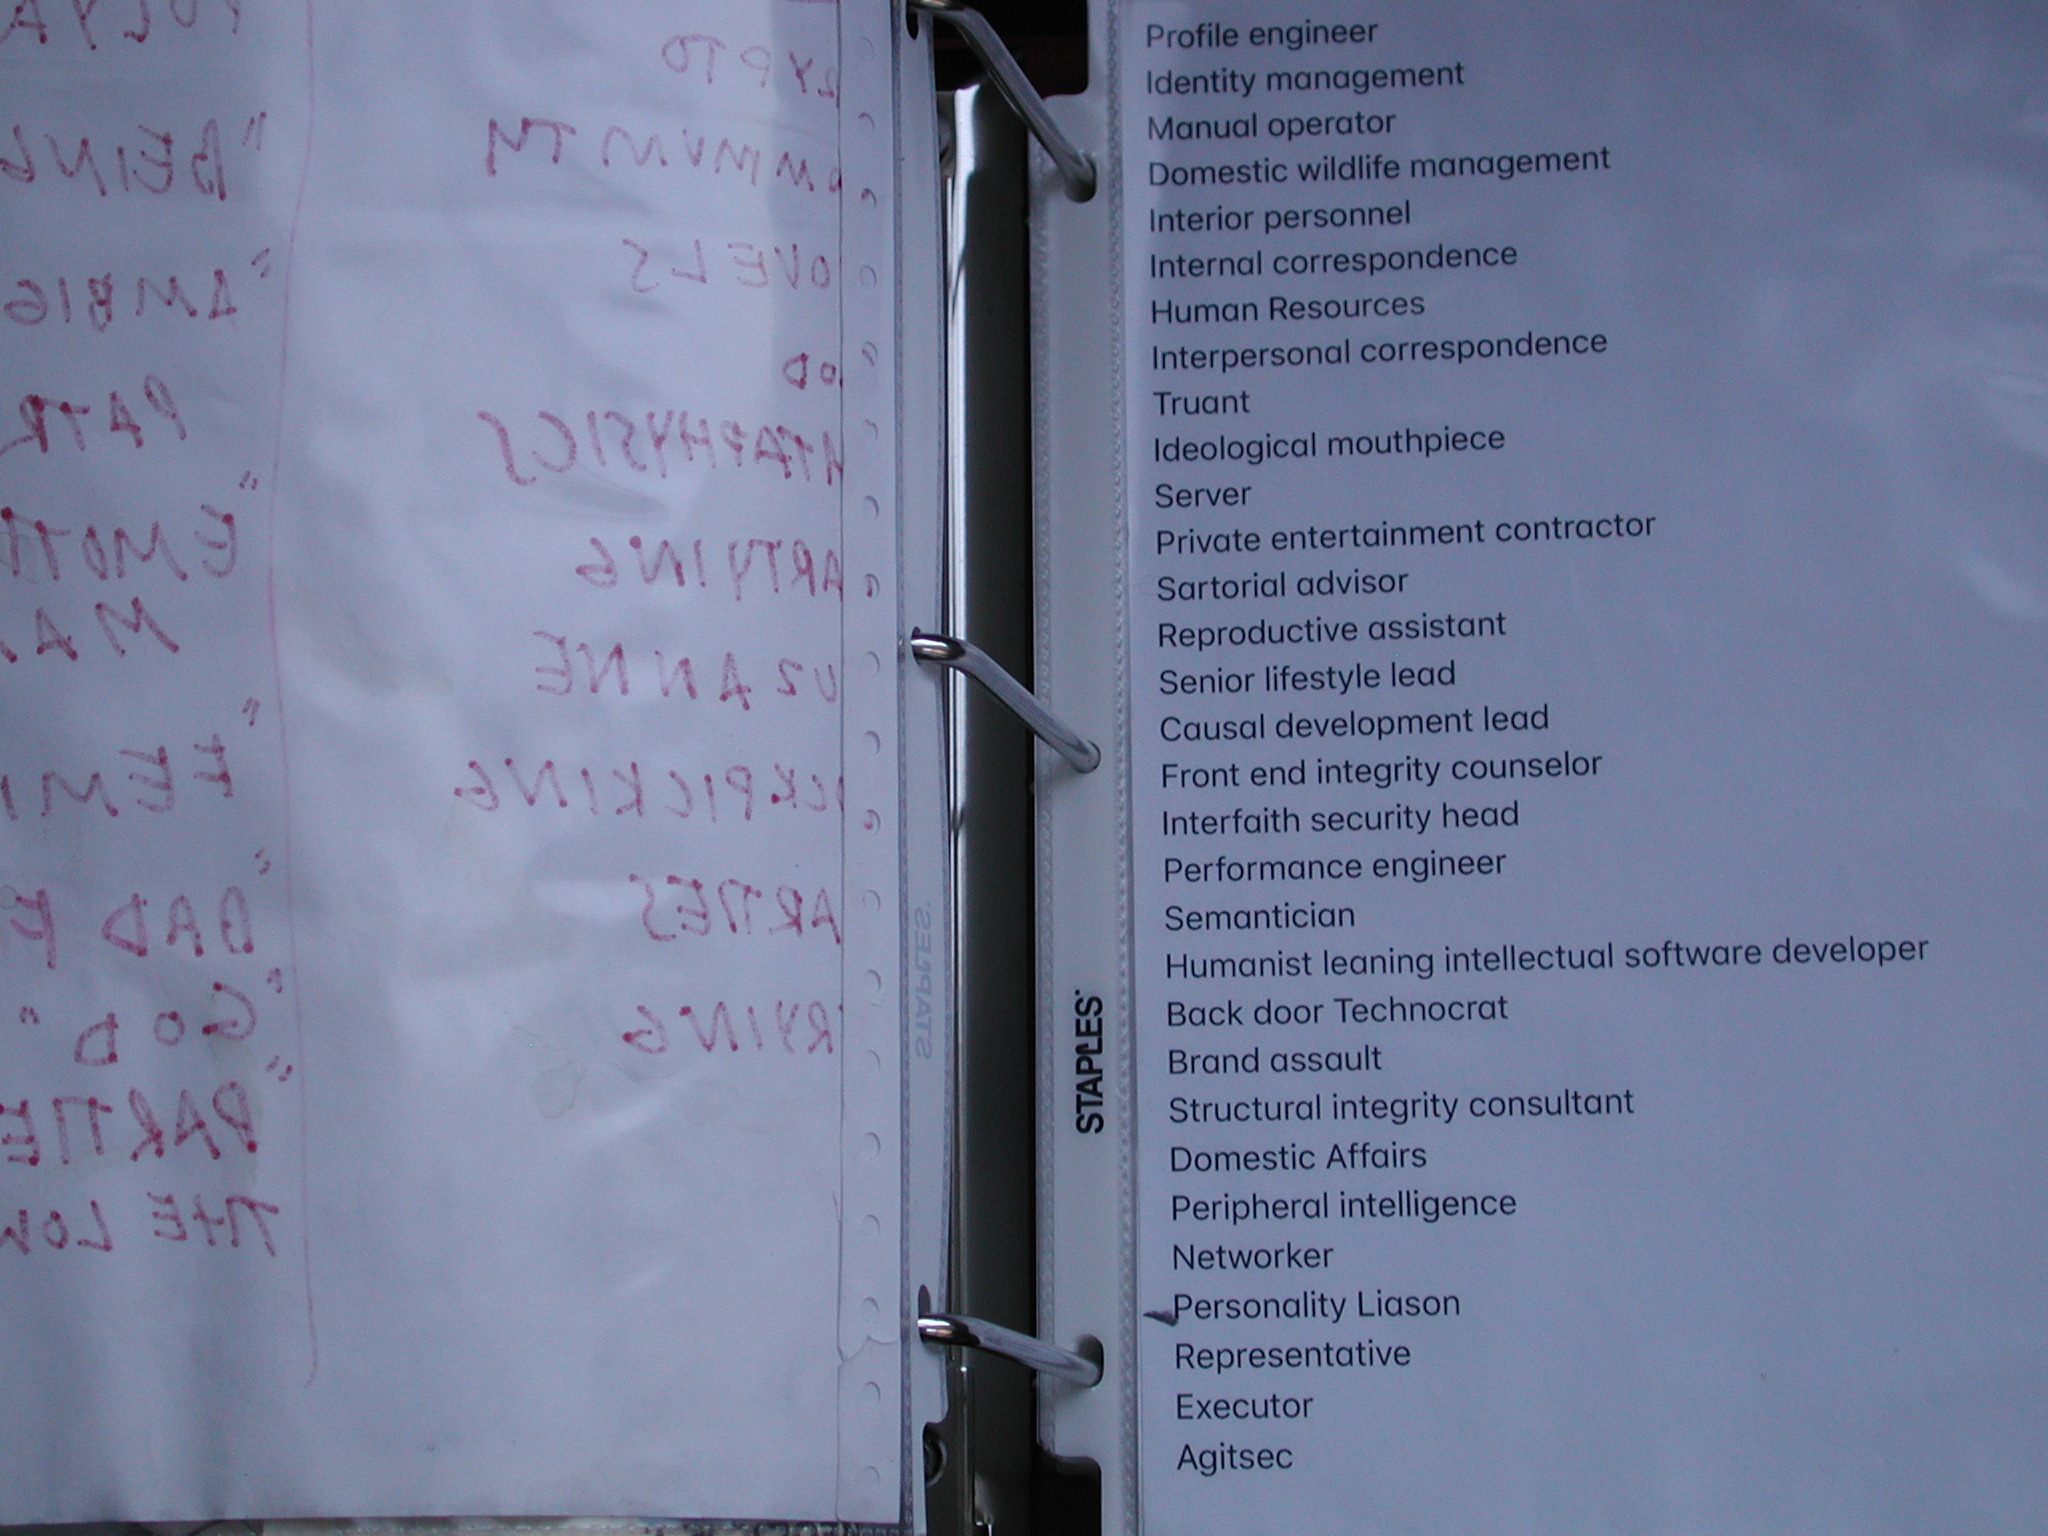 CRYPTO
COMMUNITY
NOVELS
GOD
PARTYING
SUZANNE
LOCKPICKING
PARTIES
"BEING
"AMBIG
PATR
"EMOTI
MA
"FEMI
"BAD F
"GOD"
"PARTIE
THE LOW
STAPLES
STAPLES
Profile engineer
Identity management
Manual operator
Domestic wildlife management
Interior personnel
Internal correspondence
Human Resources
Interpersonal correspondence
Truant
Ideological mouthpiece
Server
Private entertainment contractor
Sartorial advisor
Reproductive assistant
Senior lifestyle lead
Causal development lead
Front end integrity counselor
Interfaith security head
Performance engineer
Semantician
Humanist leaning intellectual software developer
Back door Technocrat
Brand assault
Structural integrity consultant
Domestic Affairs
Peripheral intelligence
Networker
Personality Liason
Representative
Executor
Agitsec